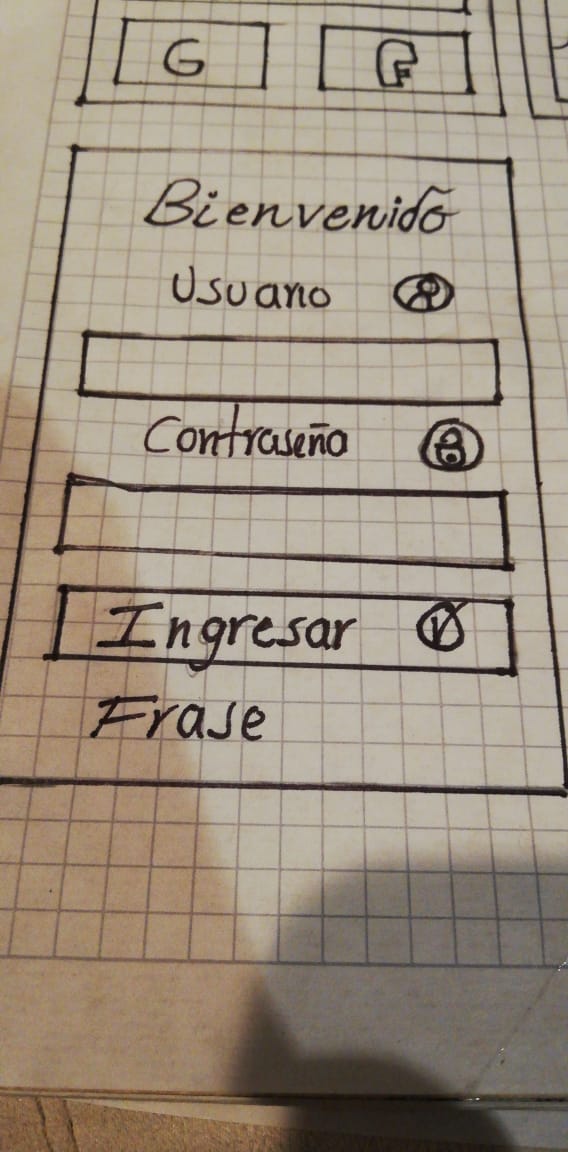 G F
Bienvenido
Usuario
Contraseña
Ingresar
Frase